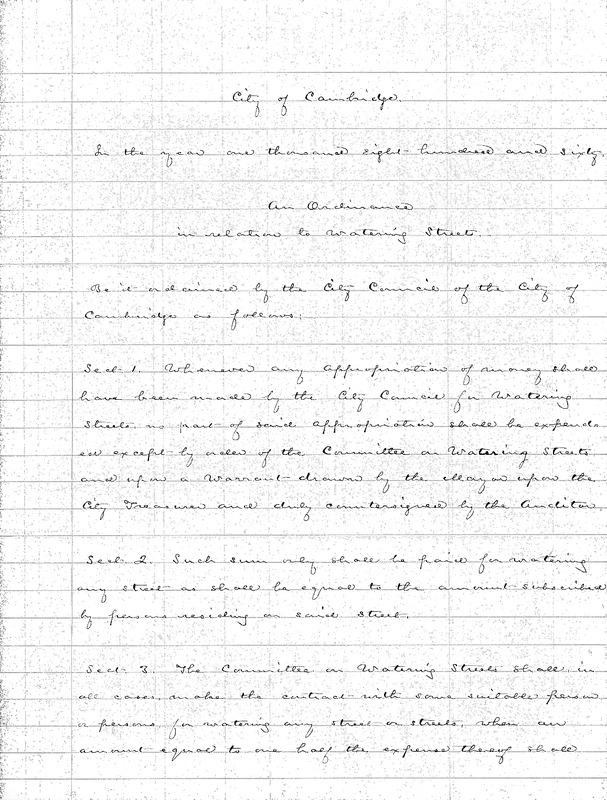 City of Cambridge.
In the year one thousand eight hundred and sixty.
An Ordinance
in relation to Watering Streets.
Be it ordained by the City Council of the City of
Cambridge as follows:
Sect. 1. Whenever any appropriation of money shall
have been made by the City Council for Watering
Streets no part of said appropriation shall be expend-
ed except by order of the Committee on Watering Streets
and upon a Warrant drawn by the Mayor upon the
City Treasurer and duly countersigned by the Auditor.
Sect. 2. Such sum only shall be paid for watering
any street as shall be equal to the amount subscribed
by persons residing on said Street.
Sect. 3. The Committee on Watering Streets shall, in
all cases, make the contract with some suitable person
or persons, for watering any street or streets, when an
amount equal to one half the expense thereof shall